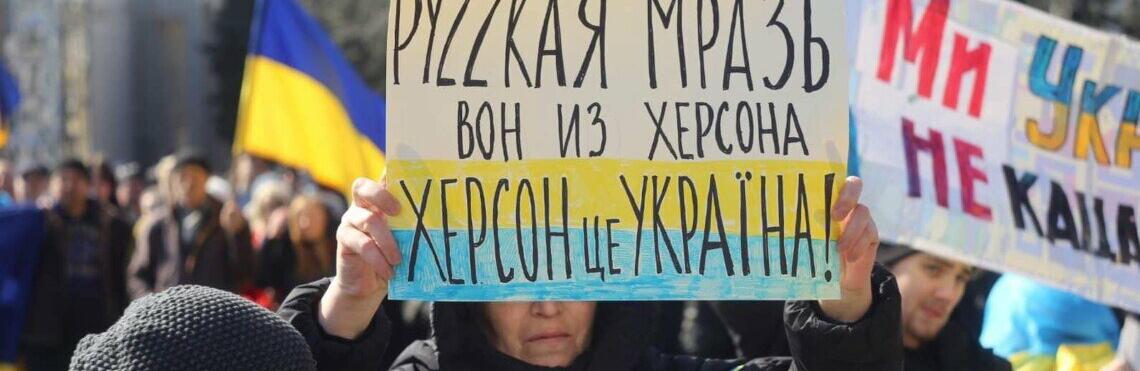 РУZZКАЯ МРАЗЬ
ВОН ИЗ ХЕРСОНА
ХЕРСОН ЦЕ УКРАЇНА!
Ми
НЕ